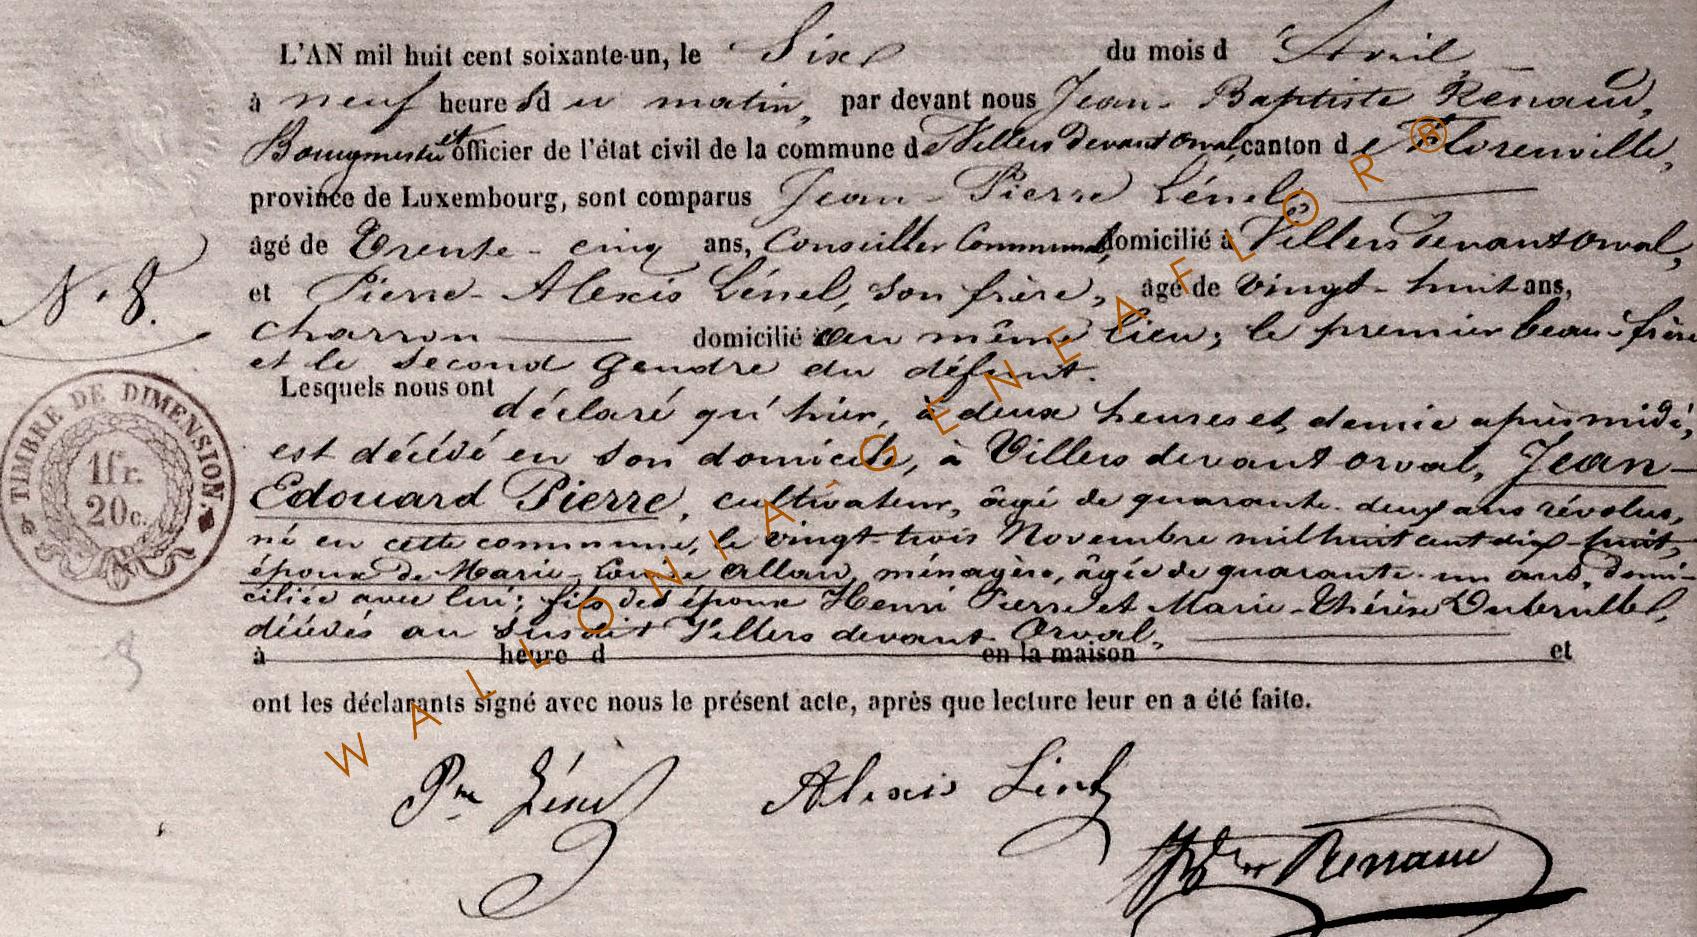 L'AN mil huit cent soixante-un, le Six du mois d'Avril,
à neuf heures du matin, par devant nous Jean-Baptiste Renaud,
Bourgmestre et officier de l'état civil de la commune de Villers devant Orval, canton de Florenville,
province de Luxembourg, sont comparus Jean-Pierre Lénel,
âgé de Trente-cinq ans, Conseiller Communal, domicilié à Villers devant Orval,
et Pierre-Alexis Lénel, son frère, âgé de vingt-huit ans,
charron domicilié au même lieu; le premier beau-frère
et le second gendre du défunt.
Lesquels nous ont
déclaré qu'hier, à deux heures et demie après midi,
est décédé en son domicile, à Villers devant Orval, Jean-
Edouard Pierre, cultivateur, âgé de quarante-deux ans révolus,
né en cette commune, le vingt-trois Novembre mil huit cent dix-huit,
époux de Marie-Louise Allau, ménagère, âgée de quarante-un ans, domi-
ciliée avec lui; fils des époux Henri Pierre et Marie-Thérèse
décédés au susdit Villers devant Orval,
à heure d en la maison et
ont les déclarants signé avec nous le présent acte, après que lecture leur en a été faite.
Pre Lénel Alexis Lénel
Renaud
N. 8.
TIMBRE DE DIMENSION.
1fr.
20c.
WALLONIA-GENEAFLOR®